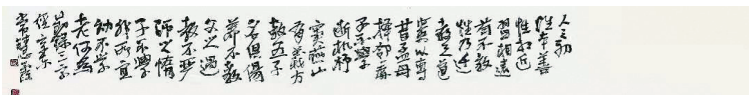 人之初
性本善
性相近
習相遠
苟不教
性乃遷
教之道
貴以專
昔孟母
擇鄰處
子不學
斷機杼
竇燕山
有義方
教五子
名俱揚
養不教
父之過
教不嚴
師之惰
子不學
非所宜
幼不學
老何為
錄三字
經